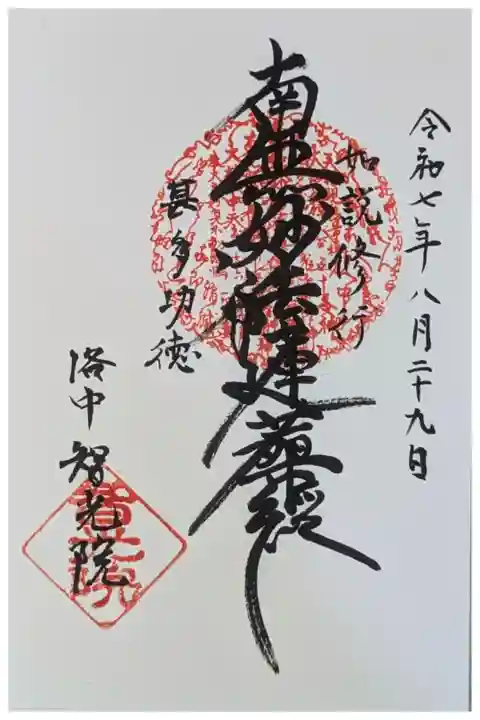 令和七年八月二十九日
如説修行
南無妙法蓮華経
甚多功徳
洛中
智光院